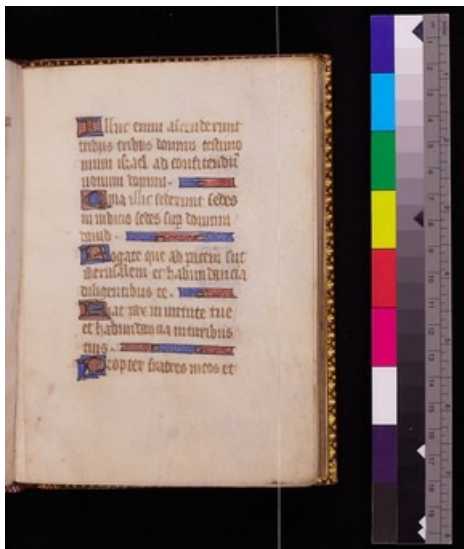 Illuc enim ascenderunt
tribus tribus domini testimo
nium israel ad confitendū
nomini domini.
Quia illic sederunt sedes
in iudicio sedes sup domum
david.
Rogate que ad pacem sut
iherusalem et habundancia
diligentibus te.
Fiat pax in virtute tue
et habundancia in turribus
tuis.
Propter fratres meos et